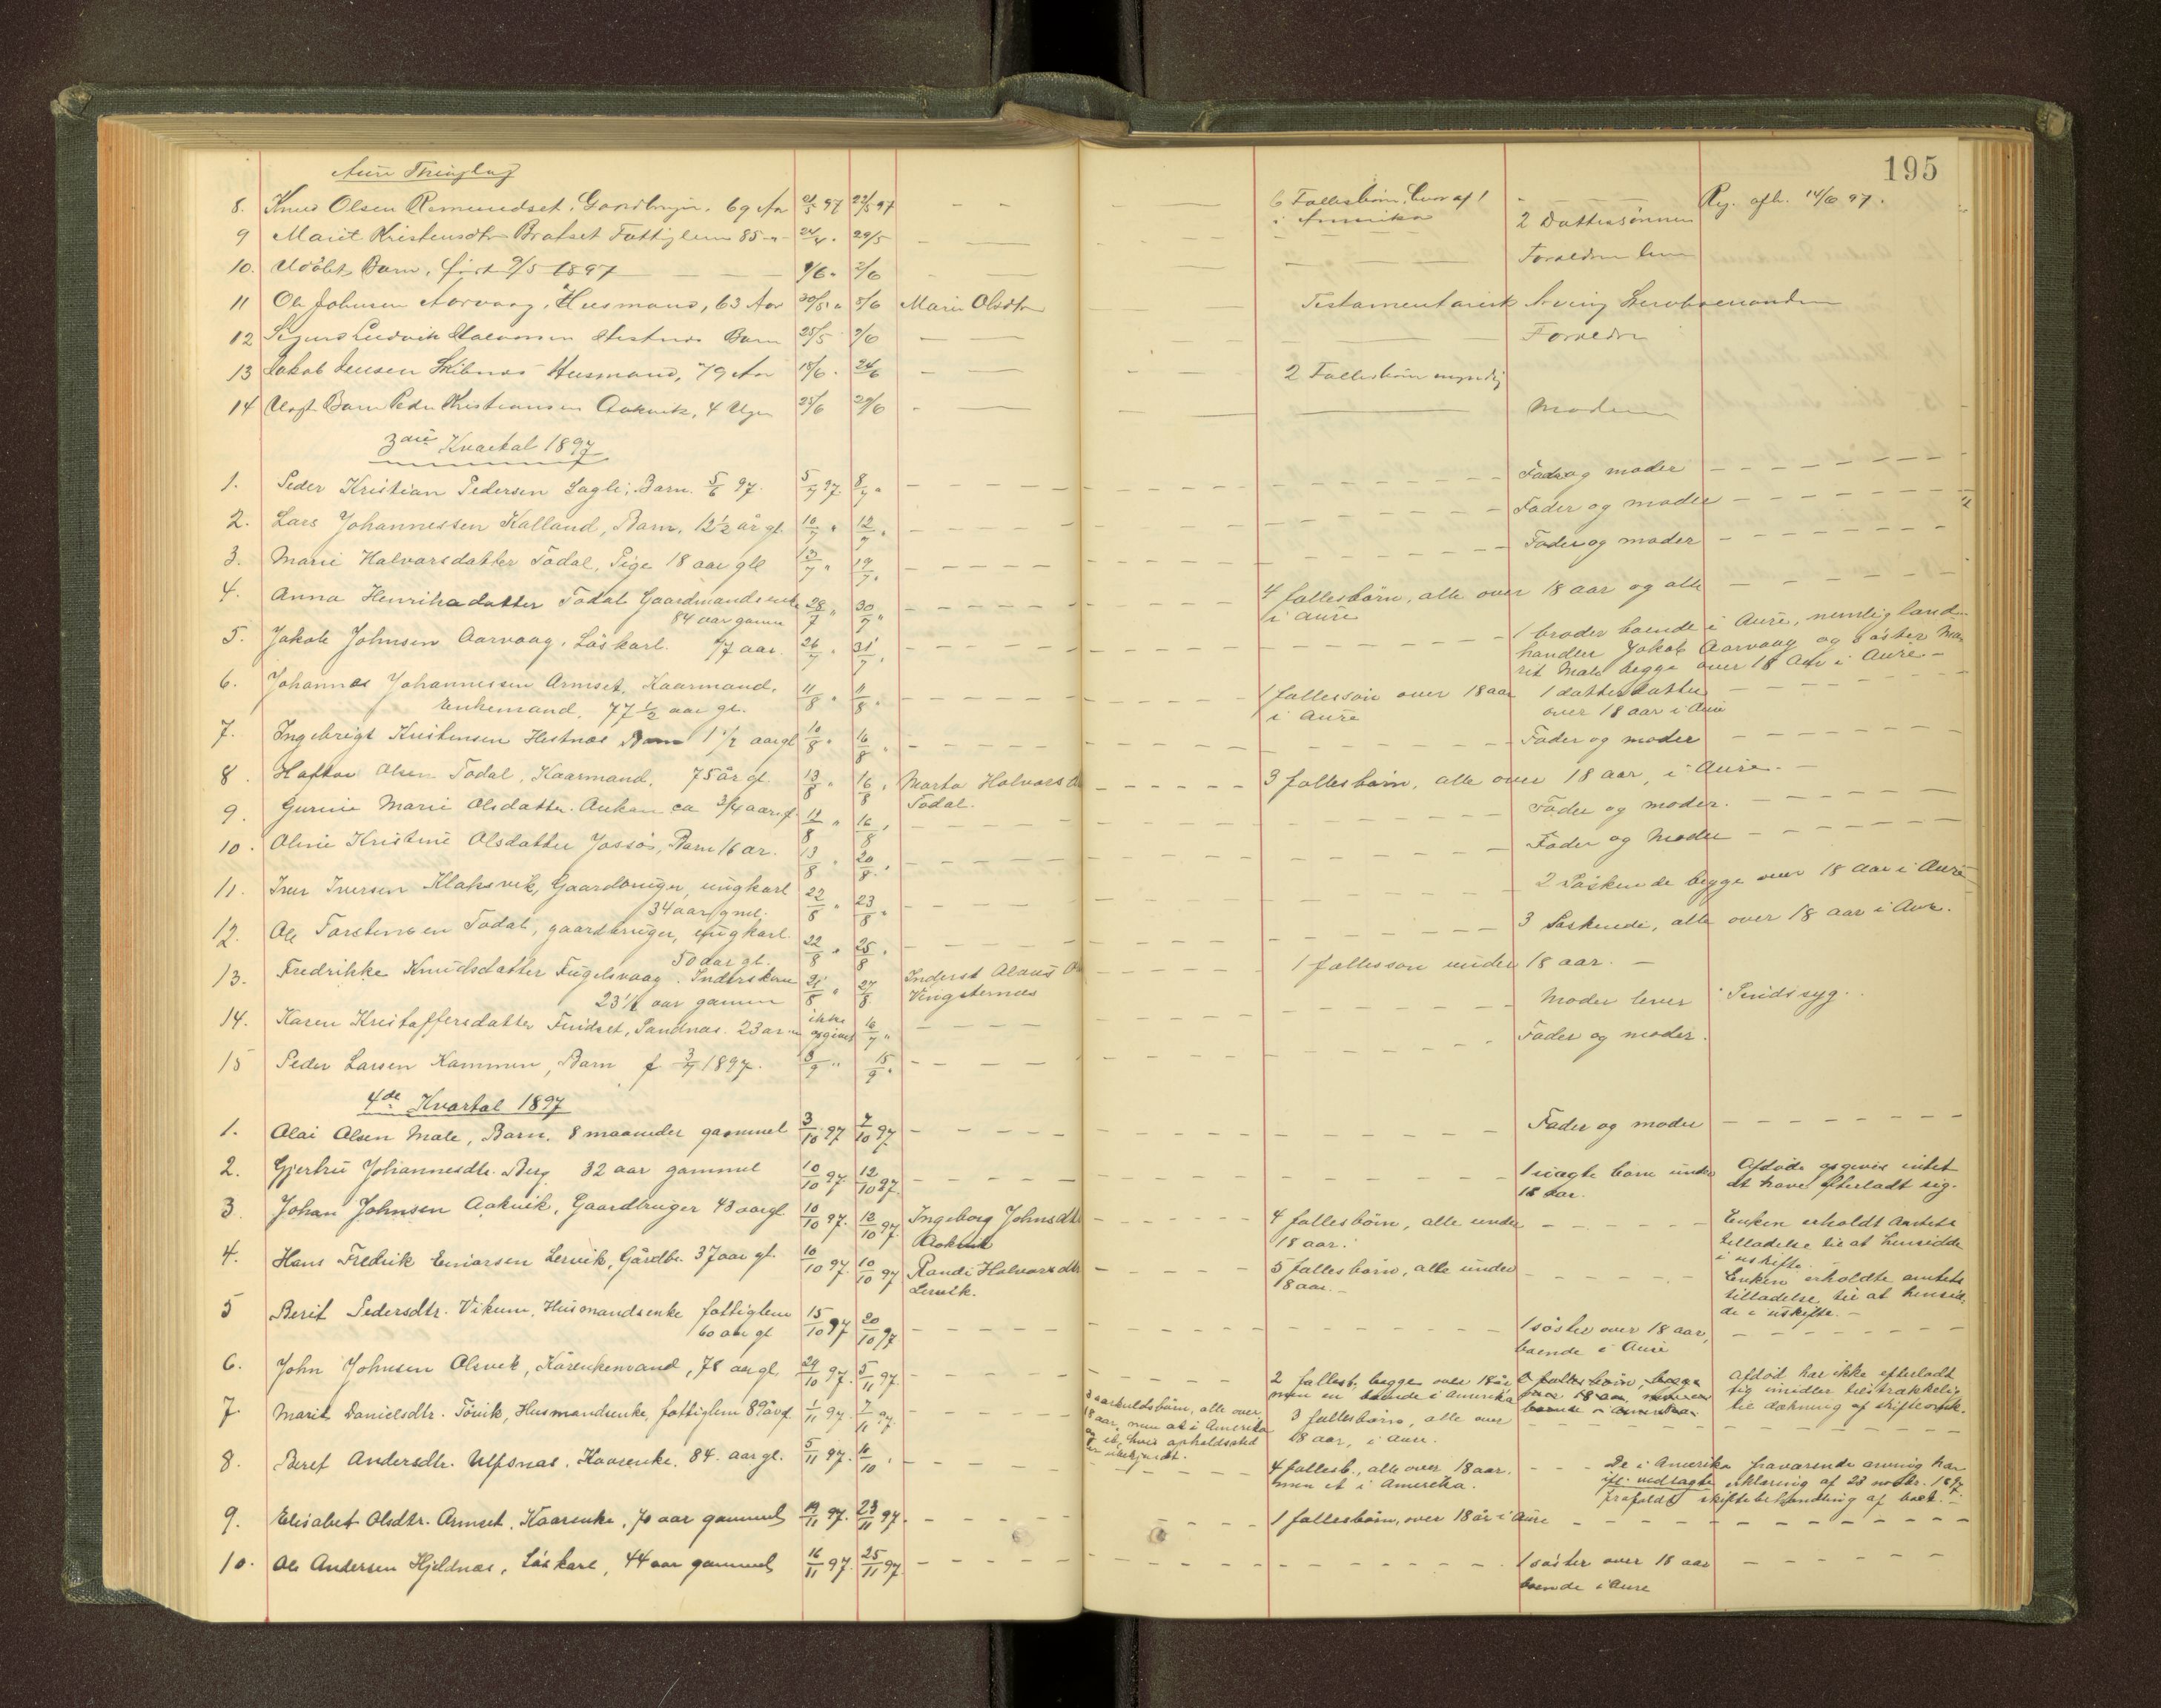 195
Aure Thinglag
8. Knud Olsen Remmendset, Gaardbruger, 69 Aar 21/5 97 23/5 97 — — 6 Fællesbörn, hvoraf 1 i Amerika — Reg. afh. 14/6 97.
9 Marit Kristensdtr Bratset Fattiglem 85 " 24/4 " 29/5 — — 2 Dattersönner
10. Udöbt Barn, födt 9/5 1897 — 9/6 " 2/6 — — Forældre
11 Ole Johnsen Aarvaag, Husmand, 63 Aar 30/5 " 5/6 Marie Olsdtr — Testamentarisk Arving
12 Sigurd Ludvik Halvorsen Hestnes Barn 25/5 9/6 — — Forældre
13 Jakob Jensen Skibnes Husmand, 79 Aar 18/6 " 24/6 — — 2 Fællesbörn myndig
14 Uægt. Barn Peder Kristiansen Aakvik, 4 Uger 25/6 29/6 — — Moderen
3die Kvartal 1897
1. Peder Kristian Pedersen Lagli, Barn. 5/6 97. 5/7 97 8/7 " — — Fader og moder —
2. Lars Johannessen Kalland, Barn, 12 1/2 år gl. 10/7 " 12/7 " — — Fader og moder —
3. Marie Halvorsdatter Todal, Pige 18 aar gl 13/7 " 19/7 " — — Fader og moder —
4. Anna Henriksdatter Todal Gaardmandsenke 28/7 " 30/7 " — — 4 fællesbörn, alle over 18 aar og alle —
84 aar gammel i Aure
5. Jakob Johnsen Aarvaag, Löskarl. 77 aar. 26/7 " 31/7 " — — 1 broder boende i Aure, nemlig land-
handler Jakob Aarvaag og söster Ma-
rit Male begge over 18 Aar i Aure —
6. Johannes Johannessen Armset, Kaarmand, 11/8 " 11/8 " — — 1 fællessön over 18 aar 1 datterdatter —
Enkemand, 77 1/2 aar gl. i Aure over 18 aar i Aure
7. Ingebrigt Kristensen Hestnes Barn 1 1/2 aar gl 10/8 " 16/8 " — — Fader og moder —
8. Haftor Olsen Todal, Kaarmand, 75 år gl. 13/8 " 16/8 " Marta Halvorsd — 3 fællesbörn, alle over 18 aar, i Aure —
Todal.
9. Gurine Marie Olsdatter Aukan ca 3/4 aar gl. 14/8 " 16/8 " — — Fader og moder. —
10. Oline Kristine Olsdatter Jossö, Barn 16 ar. 13/8 " 20/8 " — — Fader og Moder —
11. Iver Iversen Klaksvik, Gaardbruger, ungkarl 22/8 " 23/8 " — — 2 Söskende begge over 18 aar i Aure
34 aar gml.
12. Ole Torstensen Todal, gaardbruger, ungkarl. 22/8 " 25/8 " — — 3 Söskende, alle over 18 aar i Aure.
50 aar gl.
13. Fredrikke Knudsdatter Fugelsvaag, Inderstkone 21/8 " 27/8 Inderst Alaus — 1 fællessön under 18 aar. —
23 1/2 aar gammel Vingsternes
14. Karen Kristoffersdatter Finset, Sandnes. 23 ar ikke opgivet 16/7 " — — Moder lever Sindssyg.
15 Peder Larsen Kammen, Barn f 3/7 1897. 8/9 " 15/9 " — — Fader og moder.
4de Kvartal 1897
1. Olai Olsen Male, Barn. 8 maaneder gammel 3/10 97 7/10 97 — — Fader og moder —
2. Gjertru Johannesdtr. Berg 32 aar gammel 10/10 97. 12/10 97. — — 1 uægte barn under 18 aar. Afdöde opgives intet
at have efterladt sig.
3. Johan Johnsen Aakvik, Gaardbruger 43 aar gl. 10/10 97. 12/10 97. Ingeborg Johnsdtr Aakvik — 4 fællesbörn, alle under 18 aar. — Enken erholdt Amtets
tilladelse til at hensidde
i uskifte. —
4. Hans Fredrik Einarsen Lervik, Gårdbr. 37 aar gl. 10/10 97. 10/10 97 Randi Halvorsdtr Lervik. — 5 fællesbörn, alle under 18 aar. — Enken erholdte amtets
tilladelse til at hensid-
de i uskifte. —
5 Berit Pedersdtr. Vikum, Husmandsenke fattiglem 15/10 97 20/10 97 — — 1 söster over 18 aar, —
60 aar gl boende i Aure
6. John Johnsen Olsvik, Kårenkemand, 78 aar gl. 29/10 97. 5/11 97. — 2 fællesb. begge over 18 år Afdöd. har ikke efterladt
men en boende i Amerika sig midler tilstrækkelig
til dækning af skifteomk.
7. Marit Danielsdtr. Tövik, Husmandsenke, fattiglem 89 år gl. 1/11 97. 7/11 97. 3 særkuldsbörn, alle over 3 fællesbörn, alle over —
18 aar, men at i Amerika 18 aar, i Aure.
og et, hvis opholdssted
er ubekjendt.
8. Beret Andersdtr. Ulfsnes, Kaarenke, 84. aar gl. 5/11 97. — 4 fællesb., alle over 18 aar. — De i Amerika fraværende arving har
men et i Amerika. ifl. vedlagte erklæring af 23 novbr. 1897
frafaldt skiftebehandling af boet. —
9. Elisabet Olsdtr. Armset, Kaarenke, 70 aar gammel 19/11 97. 23/11 97. — — 1 fællesbörn, over 18 år i Aure —
10. Ole Andersen Hjeldnes, Löskarl, 44 aar gammel 16/11 97. 25/11 97. — — 1 söster over 18 aar —
boende i Aure